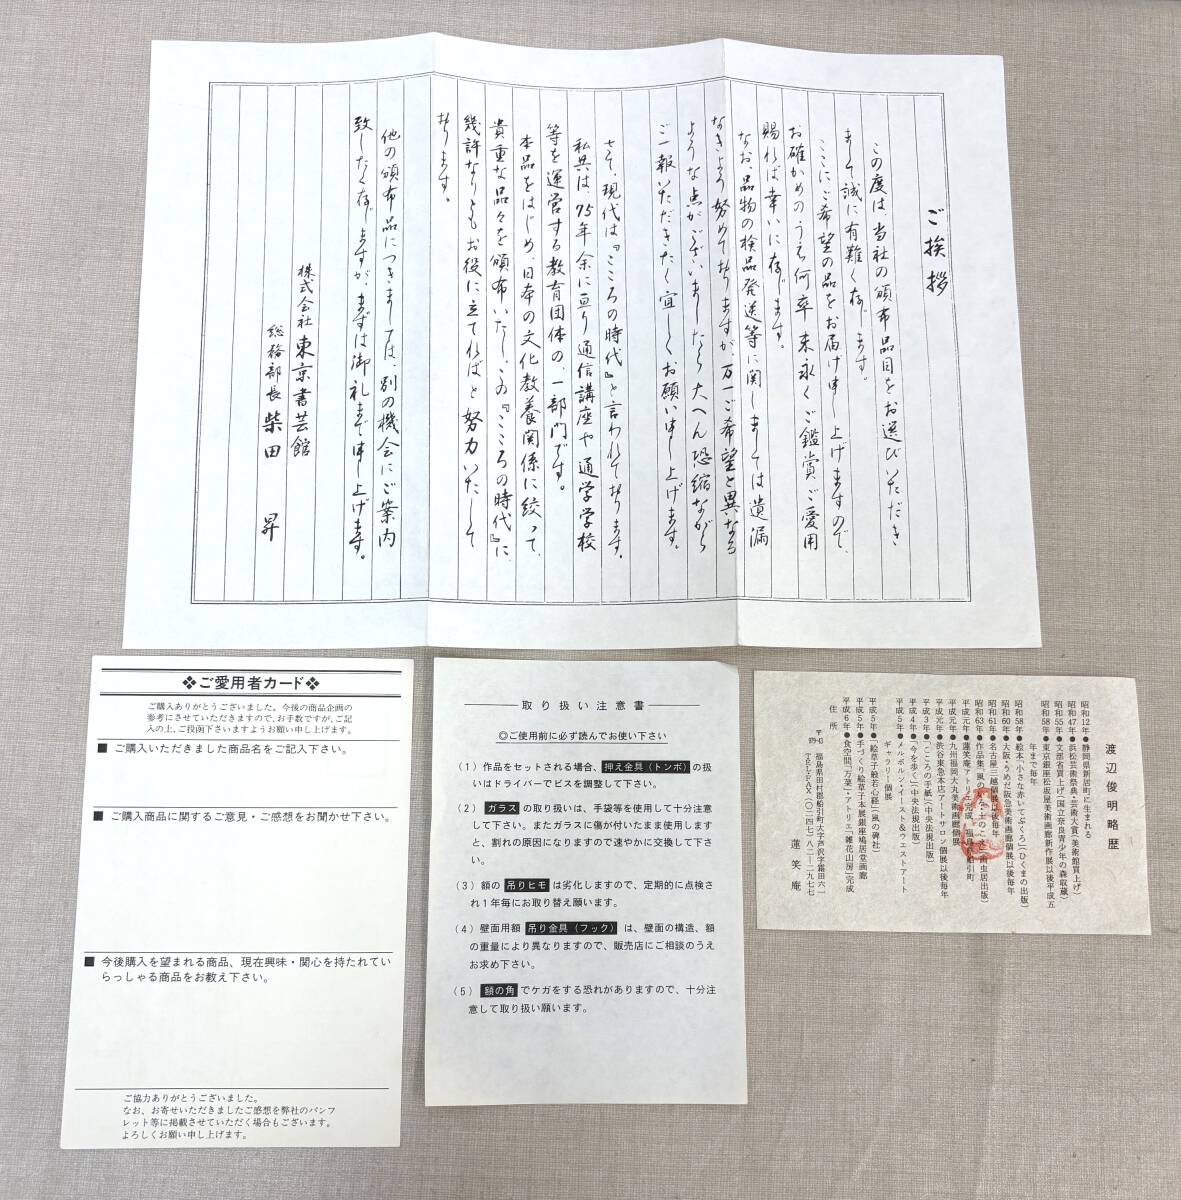 ご挨拶
この度は当社の頒布品目をお選びいただき
まして誠に有難く存じます。
ここにご希望の品をお届け申し上げますので、
お確かめのうえ何卒末永くご鑑賞ご愛用
賜れば幸いに存じます。
なお、品物の検品発送等に関しましては遺漏
なきよう努めて おりますが、万一ご希望と異なる
ような点がございましたら大へん恐縮ながら
ご一報いただきたく宜しくお願い申し上げます。
さて、現代は『こころの時代』と言われております。
私共は、75年余に亘り通信講座や通学学校
等を運営する教育団体の、一部門です。
本品をはじめ、日本の文化教養関係に絞って、
貴重な品々を頒布いたし、この『こころの時代』に
幾許なりともお役に立てればと努力いたして
おります。
他の頒布品につきましては、別の機会にご案内
致したく存じますが、まずは御礼まで申し上げます。
株式会社 東京書芸館
総務部長 柴田 昇
❖ご愛用者カード❖
ご購入ありがとうございました。今後の商品企画の
参考にさせていただきますので、お手数ですが、ご記
入の上、ご投函下さいますようお願い申し上げます。
■ ご購入いただきました商品名をご記入下さい。
■ ご購入商品に関するご意見・ご感想をお聞かせ下さい。
■ 今後購入を望まれる商品、現在興味・関心を持たれてい
らっしゃる商品をお教え下さい。
ご協力ありがとうございました。
なお、お寄せいただきましたご感想を弊社のパンフ
レット等に掲載させていただく場合もございます。
よろしくお願い申し上げます。
取り扱い注意書
◎ご使用前に必ず読んでお使い下さい
(1) 作品をセットされる場合、押え金具(トンボ)の扱
いはドライバーでビスを調整して下さい。
(2) ガラスの取り扱いは、手袋等を使用して十分注意
して下さい。またガラスに傷が付いたまま使用します
と、割れの原因になりますので速やかに交換して下さ
い。
(3) 額の吊りヒモは劣化しますので、定期的に点検さ
れ1年毎にお取り替え願います。
(4) 壁面用額吊り金具(フック)は、壁面の構造、額
の重量により異なりますので、販売店にご相談のうえ
お求め下さい。
(5) 額の角でケガをする恐れがありますので、十分注
意して取り扱い願います。
渡辺俊明略歴
昭和12年●静岡県新居町に生まれる
昭和47年●浜松芸術祭典・芸術大賞(美術館買上げ)
昭和55年●文部省買上げ(国立奈良青少年の森収蔵)
昭和58年●東京銀座松坂屋美術画廊新作展以後平成五
年まで毎年
昭和58年●絵本「小さな赤いてぶくろ」(ひくまの出版)
昭和60年●大阪・うめだ阪急美術画廊個展以後毎年
昭和61年●名古屋三越個展以後毎年
昭和63年●作品集「風の
平成元年●蓮笑庵アトリエ完成 福島
平成元年●九州福岡大丸美術画廊個展
平成元年●渋谷東急本店アートサロン個展以後毎年
平成3年●「こころの手紙」(中央法規出版)
平成4年●「今を歩く」(中央法規出版)
平成5年●メルボルン・イースト&ウエストアート
ギャラリー個展
平成5年●「絵草子般若心経」(風の碑社)
平成5年●手づくり絵草子本展銀座鳩居堂画廊
平成6年●食空間「万菜」・アトリエ「雑花山房」完成
住所 〒979-43 福島県田村郡船引町大字芦沢字霜田六一
TEL・FAX(〇二四七)八二―二九七七
蓮笑庵